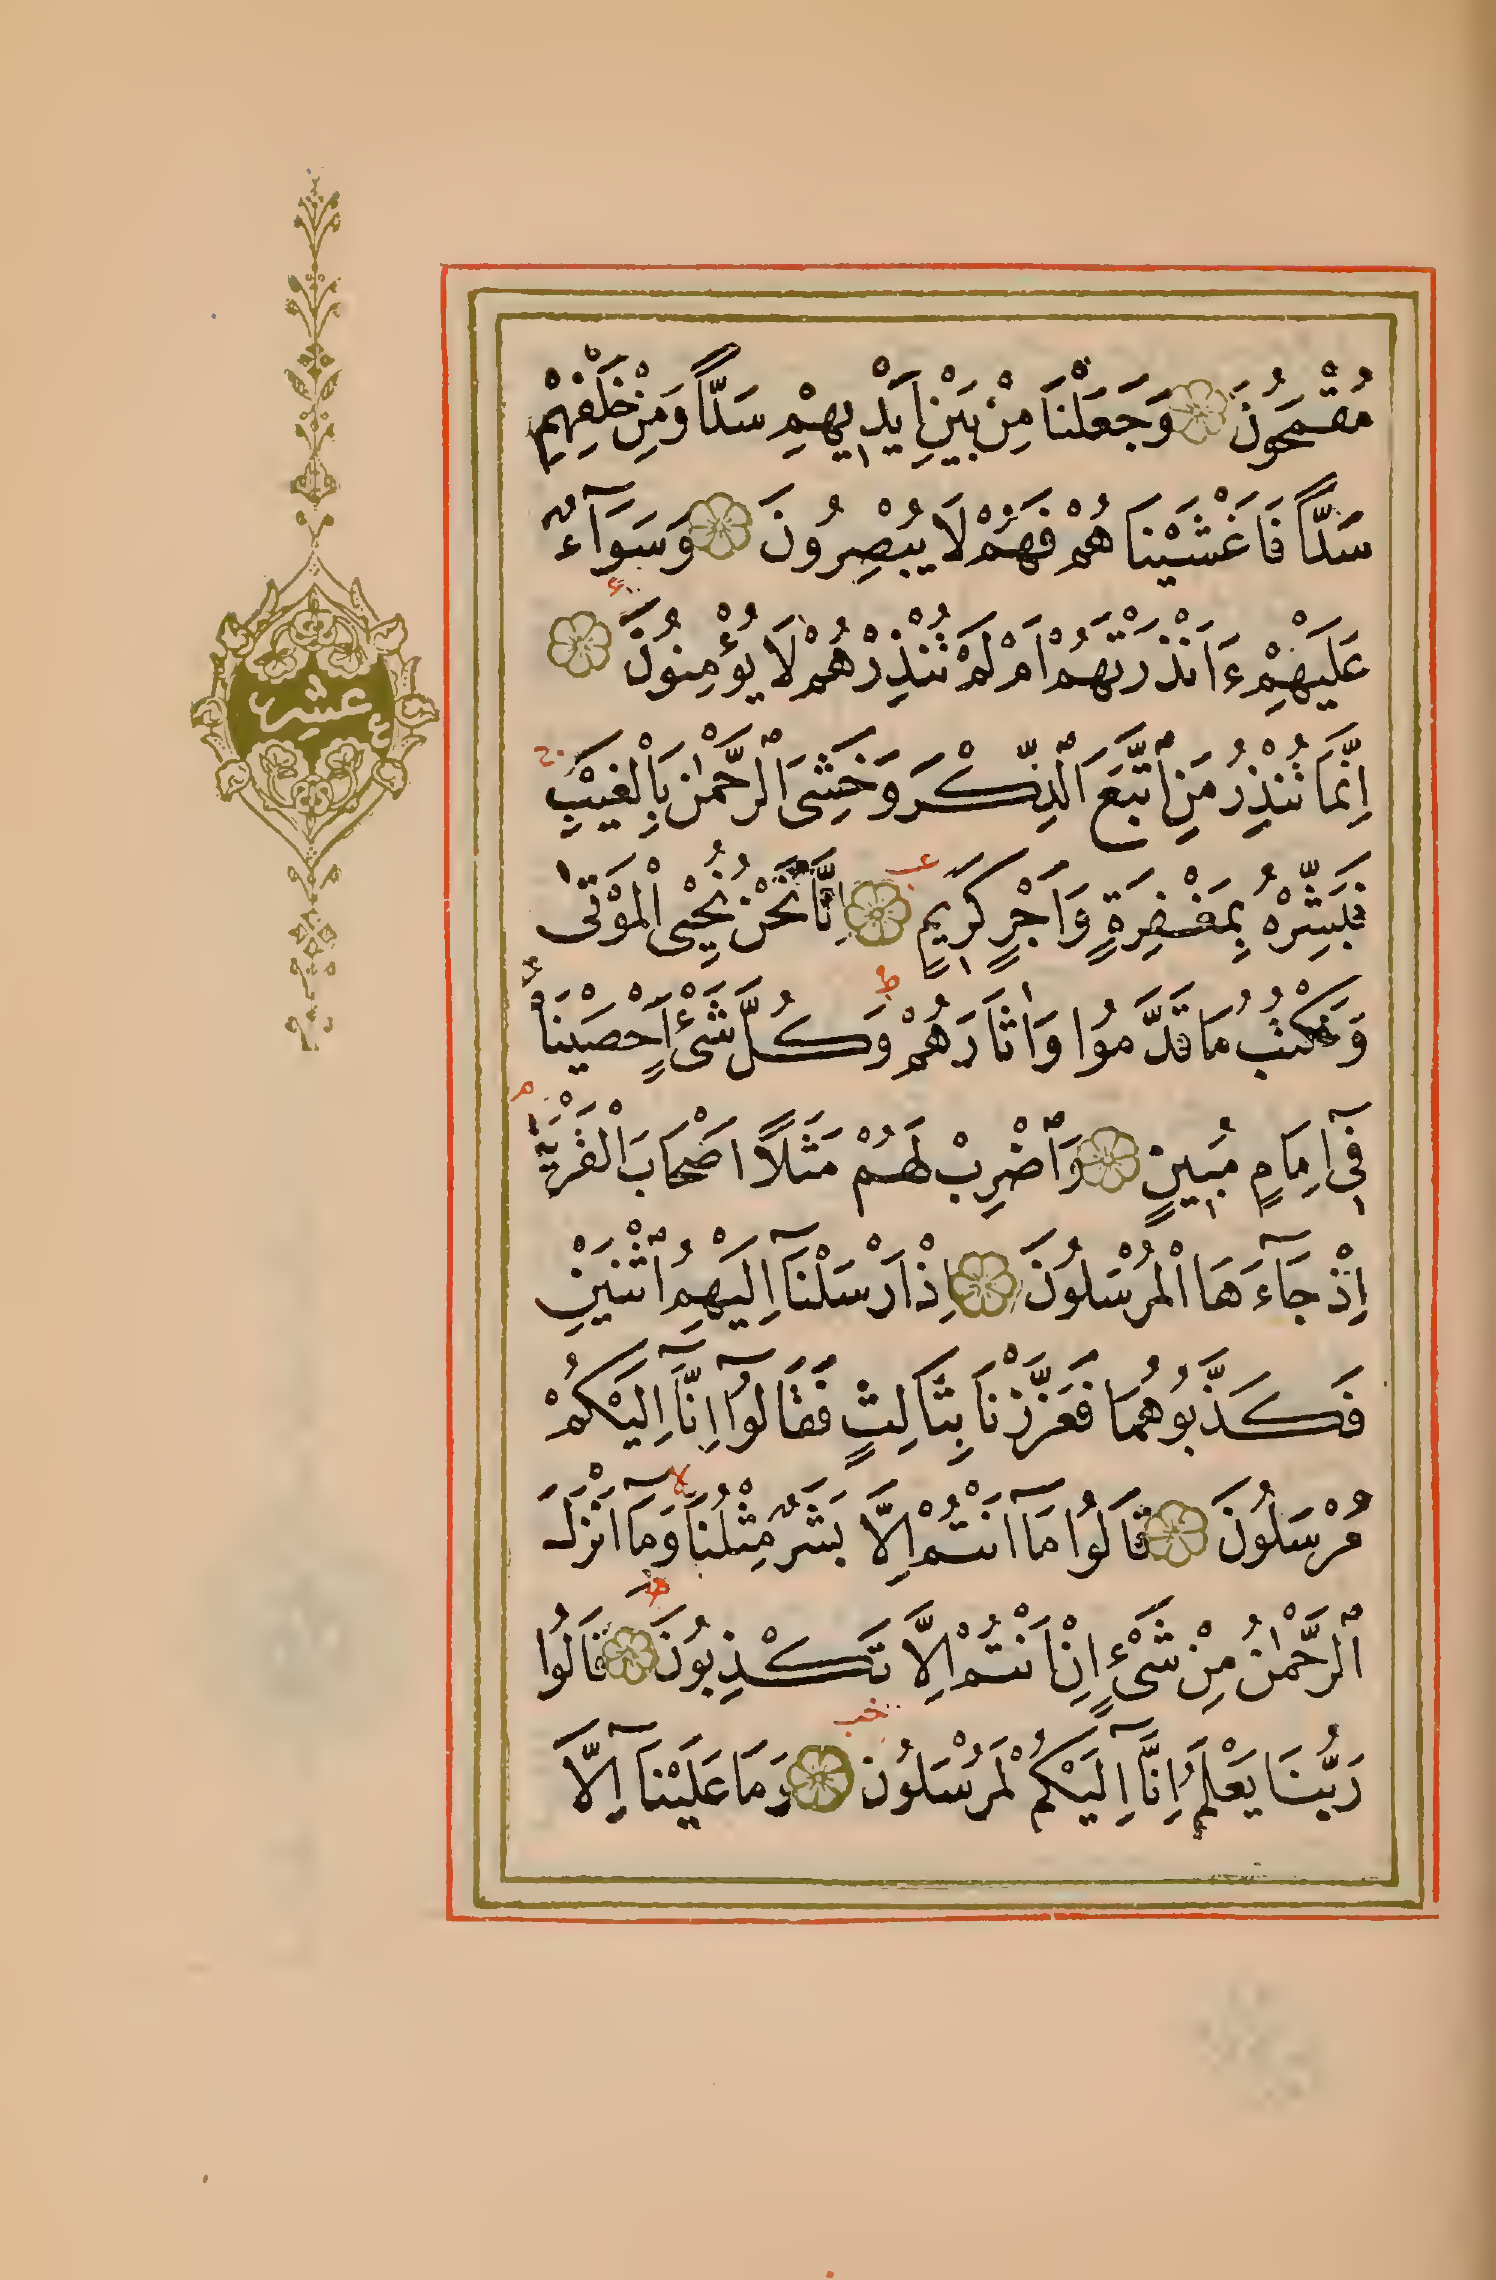 مُقْمَحُونَ ۝ وَجَعَلْنَا مِنْ بَيْنِ اَيْدِيهِمْ سَدًّا وَمِنْ خَلْفِهِمْ
سَدًّا فَاَغْشَيْنَاهُمْ فَهُمْ لَا يُبْصِرُونَ ۝ وَسَوَآءٌ
عَلَيْهِمْ ءَاَنْذَرْتَهُمْ اَمْ لَمْ تُنْذِرْهُمْ لَا يُؤْمِنُونَ ۝
اِنَّمَا تُنْذِرُ مَنِ ٱتَّبَعَ ٱلذِّكْرَ وَخَشِىَ ٱلرَّحْمٰنَ بِالْغَيْبِ
فَبَشِّرْهُ بِمَغْفِرَةٍ وَاَجْرٍ كَرِيمٍ ۝ اِنَّا نَحْنُ نُحْيِى الْمَوْتٰى
وَنَكْتُبُ مَا قَدَّمُوا وَاٰثَارَهُمْ وَكُلَّ شَىْءٍ اَحْصَيْنَاهُ
فِىٓ اِمَامٍ مُبِينٍ ۝ وَٱضْرِبْ لَهُمْ مَثَلًا اَصْحَابَ الْقَرْيَةِ
اِذْ جَآءَهَا الْمُرْسَلُونَ ۝ اِذْ اَرْسَلْنَآ اِلَيْهِمُ ٱثْنَيْنِ
فَكَذَّبُوهُمَا فَعَزَّزْنَا بِثَالِثٍ فَقَالُوٓا اِنَّآ اِلَيْكُمْ
مُرْسَلُونَ ۝ قَالُوا مَآ اَنْتُمْ اِلَّا بَشَرٌ مِثْلُنَا وَمَآ اَنْزَلَ
ٱلرَّحْمٰنُ مِنْ شَىْءٍ اِنْ اَنْتُمْ اِلَّا تَكْذِبُونَ ۝ قَالُوا
رَبُّنَا يَعْلَمُ اِنَّآ اِلَيْكُمْ لَمُرْسَلُونَ ۝ وَمَا عَلَيْنَآ اِلَّا
عشر